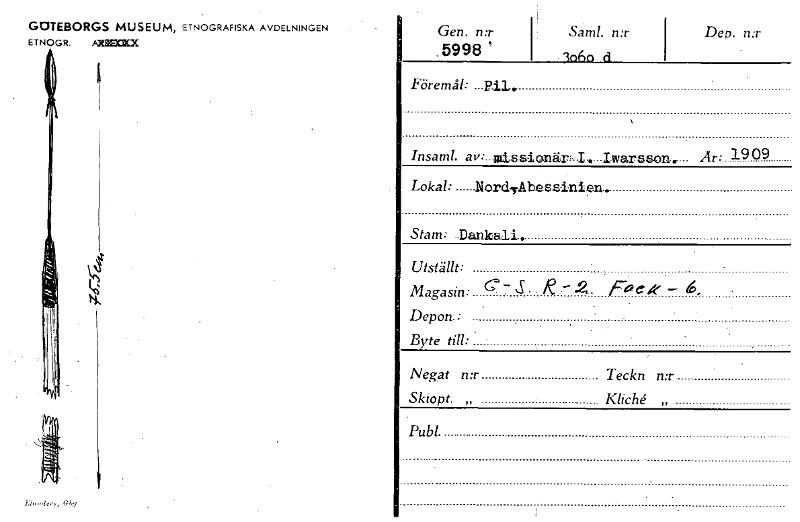 GÖTEBORGS MUSEUM, ETNOGRAFISKA AVDELNINGEN
ETNOGR.
75.5 cm
Elanders, Gbg
Gen. n:r Saml. n:r Dep. n:r
5998 3060 d
Föremål: Pil.
Insaml. av: missionär I. Iwarsson. År: 1909
Lokal: Nord-Abessinien.
Stam: Dankali.
Utställt:
Magasin: C-S. R-2. Fack-6.
Depon.:
Byte till:
Negat n:r Teckn n:r
Skiopt. „ Kliché „
Publ.